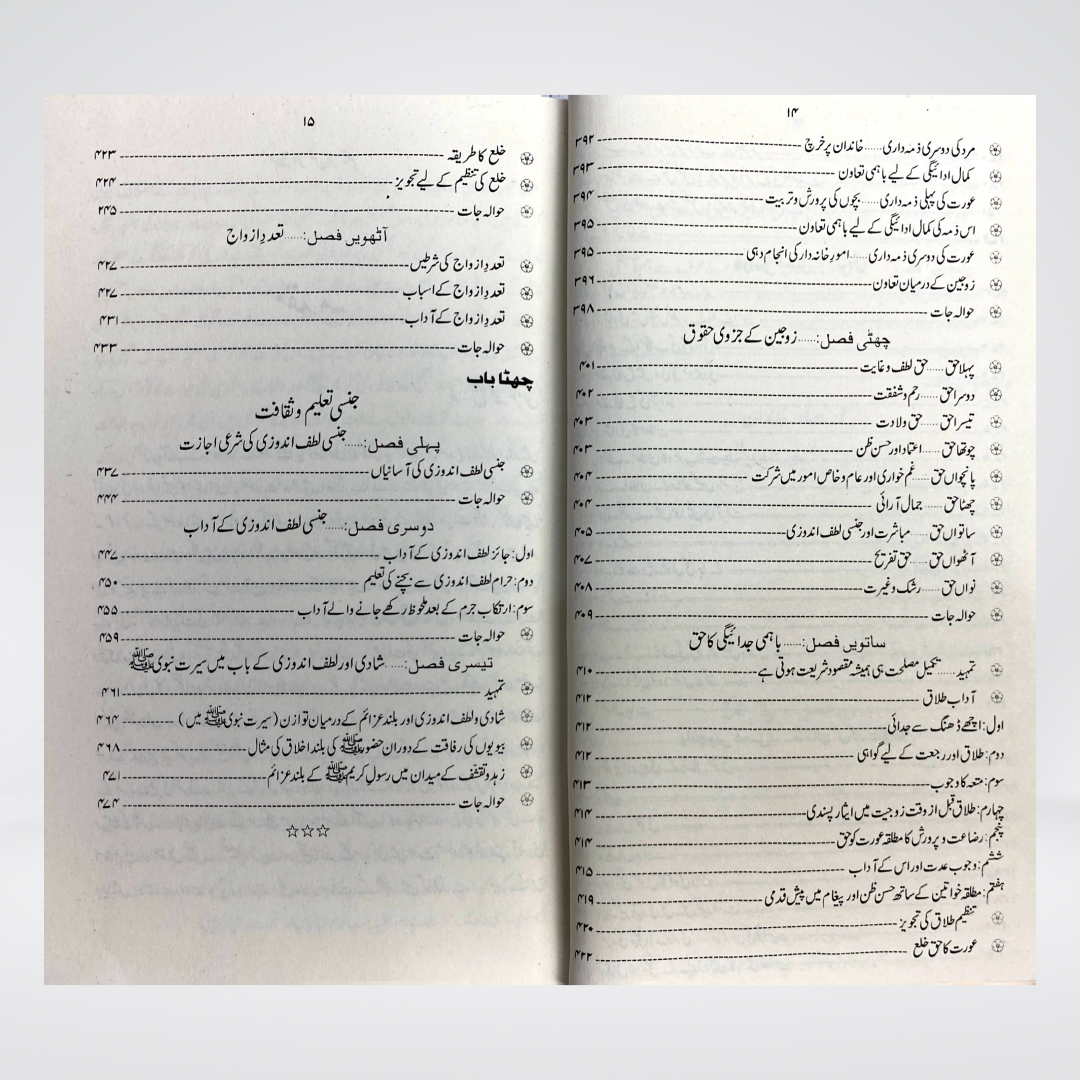 ۱۴
مرد کی دوسری ذمہ داری......خاندان پر خرچ ---------- ۳۹۲
کمال ادائیگی کے لیے باہمی تعاون ---------- ۳۹۳
عورت کی پہلی ذمہ داری......بچوں کی پرورش و تربیت ---------- ۳۹۴
اس ذمہ کی کمال ادائیگی کے لیے باہمی تعاون ---------- ۳۹۵
عورت کی دوسری ذمہ داری......امورِ خانہ دار کی انجام دہی ---------- ۳۹۵
زوجین کے درمیان تعاون ---------- ۳۹۶
حوالہ جات ---------- ۳۹۸
چھٹی فصل:......زوجین کے جزوی حقوق
پہلا حق......حق لطف و عنایت ---------- ۴۰۱
دوسرا حق......رحم و شفقت ---------- ۴۰۲
تیسرا حق......حق ولادت ---------- ۴۰۳
چوتھا حق......اعتماد اور حسن ظن ---------- ۴۰۳
پانچواں حق......غم خواری اور عام و خاص امور میں شرکت ---------- ۴۰۴
چھٹا حق......جمال آرائی ---------- ۴۰۴
ساتواں حق......مباشرت اور جنسی لطف اندوزی ---------- ۴۰۵
آٹھواں حق......حق تفریح ---------- ۴۰۷
نواں حق......رشک و غیرت ---------- ۴۰۸
حوالہ جات ---------- ۴۰۹
ساتویں فصل:......باہمی جدائیگی کا حق
تمہید......تکمیل مصلحت ہی ہمیشہ مقصود شریعت ہوتی ہے ---------- ۴۱۰
آداب طلاق ---------- ۴۱۲
اول: اچھے ڈھنگ سے جدائی ---------- ۴۱۲
دوم: طلاق اور رجعت کے لیے گواہی ---------- ۴۱۲
سوم: متعہ کا وجوب ---------- ۴۱۳
چہارم: طلاق قبل از وقت زوجیت میں ایثار پسندی ---------- ۴۱۴
پنجم: رضاعت و پرورش کا مطلقہ عورت کو حق ---------- ۴۱۴
ششم: وجوب عدت اور اس کے آداب ---------- ۴۱۵
ہفتم: مطلقہ خواتین کے ساتھ حسن ظن اور پیغام میں پیش قدمی ---------- ۴۱۹
تنظیم طلاق کی تجویز ---------- ۴۲۰
عورت کا حق خلع ---------- ۴۲۲
۱۵
خلع کا طریقہ ---------- ۴۲۳
خلع کی تنظیم کے لیے تجویز ---------- ۴۲۴
حوالہ جات ---------- ۲۴۵
آٹھویں فصل:......تعدد ازواج
تعدد ازواج کی شرطیں ---------- ۴۲۷
تعدد ازواج کے اسباب ---------- ۴۲۷
تعدد ازواج کے آداب ---------- ۴۳۱
حوالہ جات ---------- ۴۳۳
چھٹا باب
جنسی تعلیم و ثقافت
پہلی فصل:......جنسی لطف اندوزی کی شرعی اجازت
جنسی لطف اندوزی کی آسانیاں ---------- ۴۳۷
حوالہ جات ---------- ۴۴۴
دوسری فصل:......جنسی لطف اندوزی کے آداب
اول: جائز لطف اندوزی کے آداب ---------- ۴۴۷
دوم: حرام لطف اندوزی سے بچنے کی تعلیم ---------- ۴۵۰
سوم: ارتکاب جرم کے بعد ملحوظ رکھے جانے والے آداب ---------- ۴۵۵
حوالہ جات ---------- ۴۵۹
تیسری فصل:......شادی اور لطف اندوزی کے باب میں سیرت نبوی ﷺ
تمہید ---------- ۴۶۱
شادی و لطف اندوزی اور بلند عزائم کے درمیان توازن (سیرت نبوی ﷺ میں) ---------- ۴۶۴
بیویوں کی رفاقت کے دوران حضور ﷺ کی بلند اخلاق کی مثال ---------- ۴۶۸
زہد و تقشف کے میدان میں رسول کریم ﷺ کے بلند عزائم ---------- ۴۷۱
حوالہ جات ---------- ۴۷۴
☆☆☆